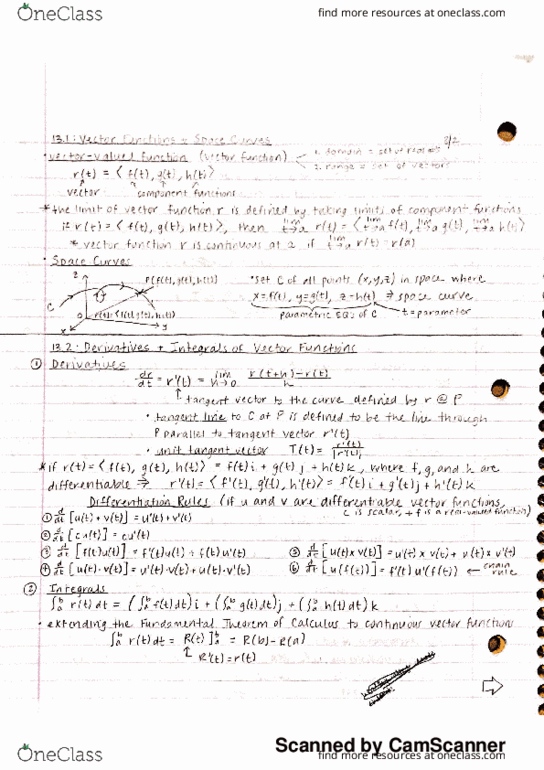 OneClass
find more resources at oneclass.com
13.1: Vector Functions + Space Curves
2/2
• vector-valued function (vector function)
1. domain = set of reals
2. range = set of vectors
r(t) = ⟨f(t), g(t), h(t)⟩
vector component functions
* the limit of vector function r is defined by taking limits of component functions
if r(t) = ⟨f(t), g(t), h(t)⟩, then lim t→a r(t) = ⟨lim t→a f(t), lim t→a g(t), lim t→a h(t)⟩
* vector function r is continuous at a if lim t→a r(t) = r(a)
• Space Curves
z
P(f(t), g(t), h(t))
C
0
r(t) = ⟨f(t), g(t), h(t)⟩
x
y
• set C of all points (x,y,z) in space where
x = f(t), y = g(t), z = h(t) ⇒ space curve
parametric eqs of C
t = parameter
13.2: Derivatives + Integrals of Vector Functions
① Derivatives
dr/dt = r'(t) = lim h→0 r(t+h) - r(t) / h
tangent vector to the curve defined by r @ P
• tangent line to C at P is defined to be the line through
P parallel to tangent vector r'(t)
• unit tangent vector T(t) = r'(t) / |r'(t)|
* if r(t) = ⟨f(t), g(t), h(t)⟩ = f(t)i + g(t)j + h(t)k, where f, g, and h are
differentiable ⇒ r'(t) = ⟨f'(t), g'(t), h'(t)⟩ = f'(t)i + g'(t)j + h'(t)k
Differentiation Rules (if u and v are differentiable vector functions,
c is scalar, + f is a real-valued function)
① d/dt [u(t) + v(t)] = u'(t) + v'(t)
② d/dt [cu(t)] = cu'(t)
③ d/dt [f(t)u(t)] = f'(t)u(t) + f(t)u'(t)
④ d/dt [u(t)·v(t)] = u'(t)·v(t) + u(t)·v'(t)
⑤ d/dt [u(t) x v(t)] = u'(t) x v(t) + u(t) x v'(t)
⑥ d/dt [u(f(t))] = f'(t)u'(f(t)) ← chain rule
② Integrals
∫ₐᵇ r(t)dt = (∫ₐᵇ f(t)dt)i + (∫ₐᵇ g(t)dt)j + (∫ₐᵇ h(t)dt)k
• extending the Fundamental Theorem of Calculus to continuous vector functions
∫ₐᵇ r(t)dt = R(t)]ₐᵇ = R(b) - R(a)
R'(t) = r(t)
Scanned by CamScanner
OneClass
find more resources at oneclass.com